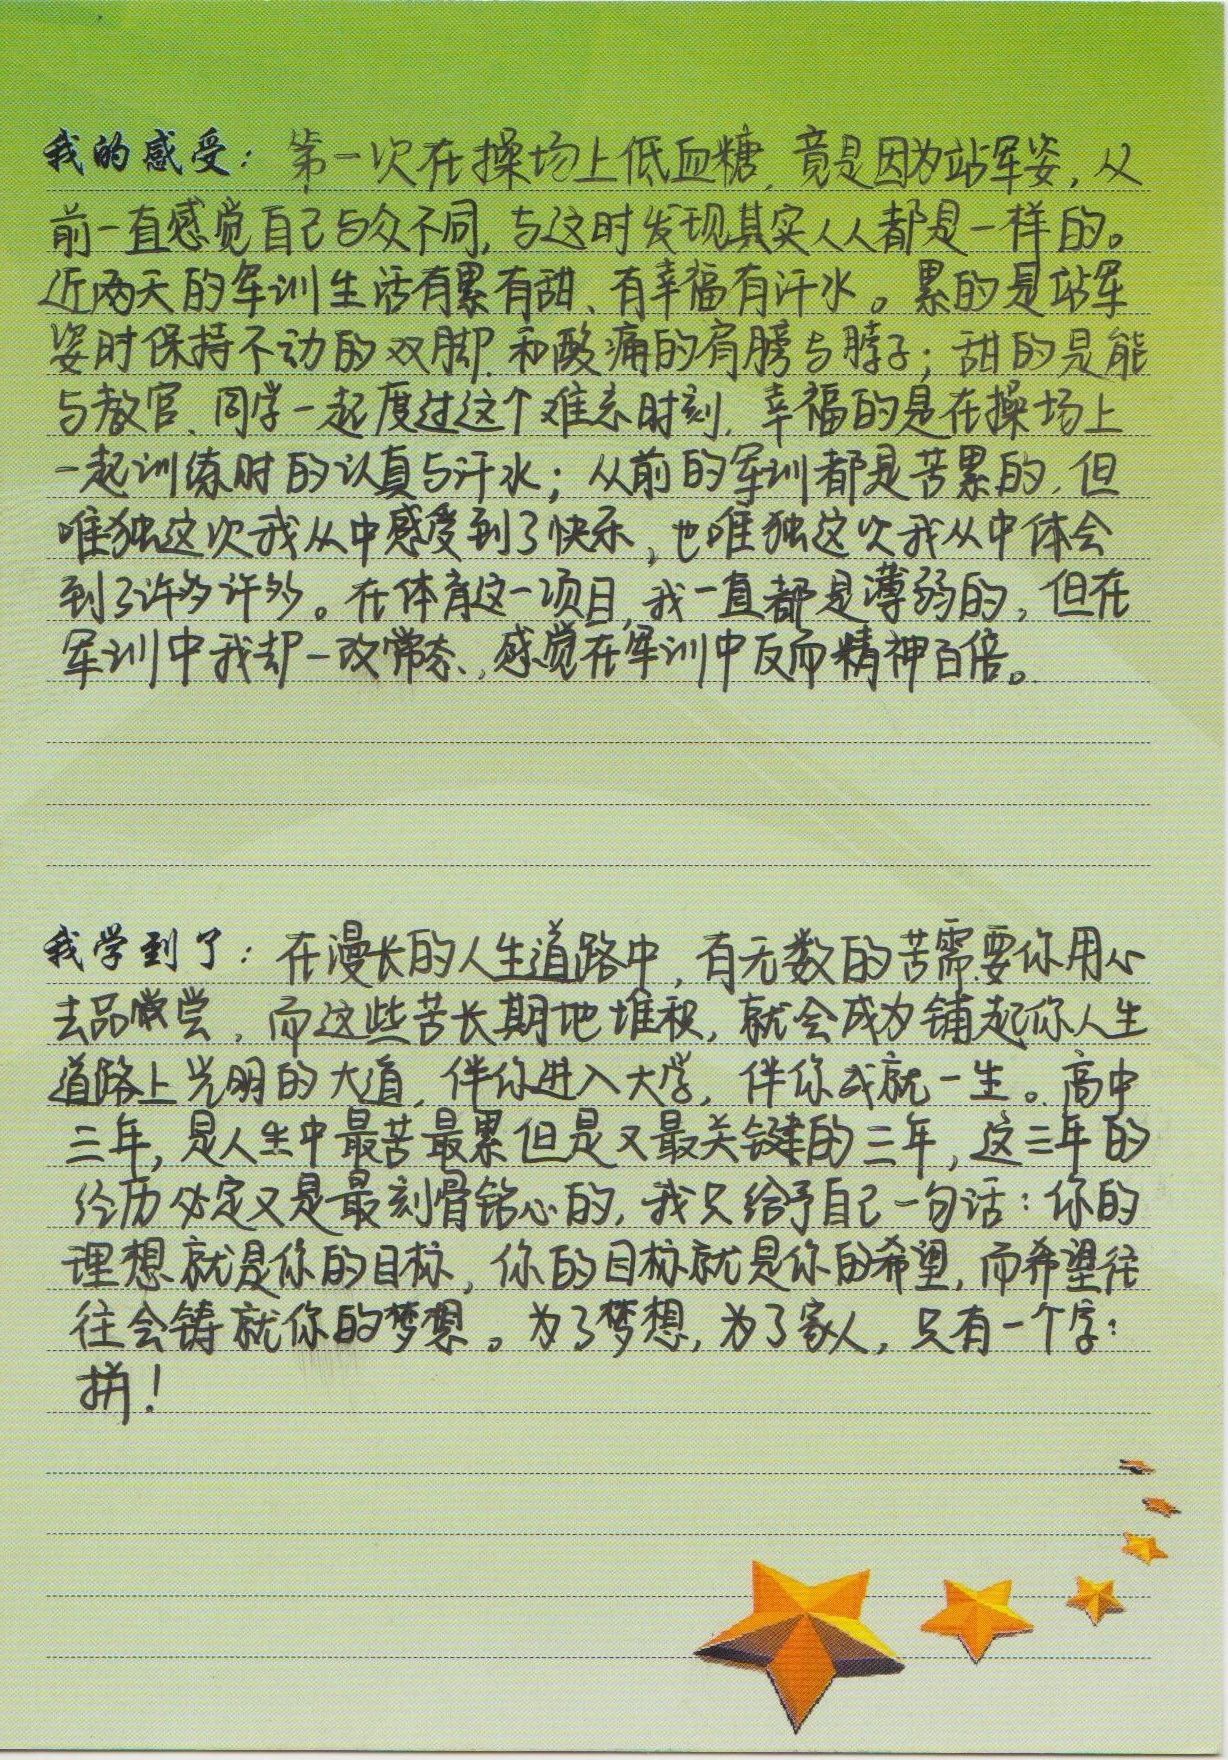 我的感受：第一次在操场上低血糖，竟是因为站军姿，从
前一直感觉自己与众不同，与这时发现其实人人都是一样的。
近两天的军训生活有累有甜、有幸福有汗水。累的是站军
姿时保持不动的双脚和酸痛的肩膀与脖子；甜的是能
与教官、同学一起度过这个难忘时刻，幸福的是在操场上
一起训练时的认真与汗水；从前的军训都是苦累的，但
唯独这次我从中感受到了快乐，也唯独这次我从中体会
到了许多许多。在体育这一项目，我一直都是薄弱的，但在
军训中我却一改常态，感觉在军训中反而精神百倍。
我学到了：在漫长的人生道路中，有无数的苦需要你用心
去品尝，而这些苦长期地堆积，就会成为铺起你人生
道路上光明的大道，伴你进入大学，伴你成就一生。高中
三年，是人生中最苦最累但是又最关键的三年，这三年的
经历必定又是最刻骨铭心的，我只给予自己一句话：你的
理想就是你的目标，你的目标就是你的希望，而希望往
往会铸就你的梦想。为了梦想，为了家人，只有一个字：
拼！